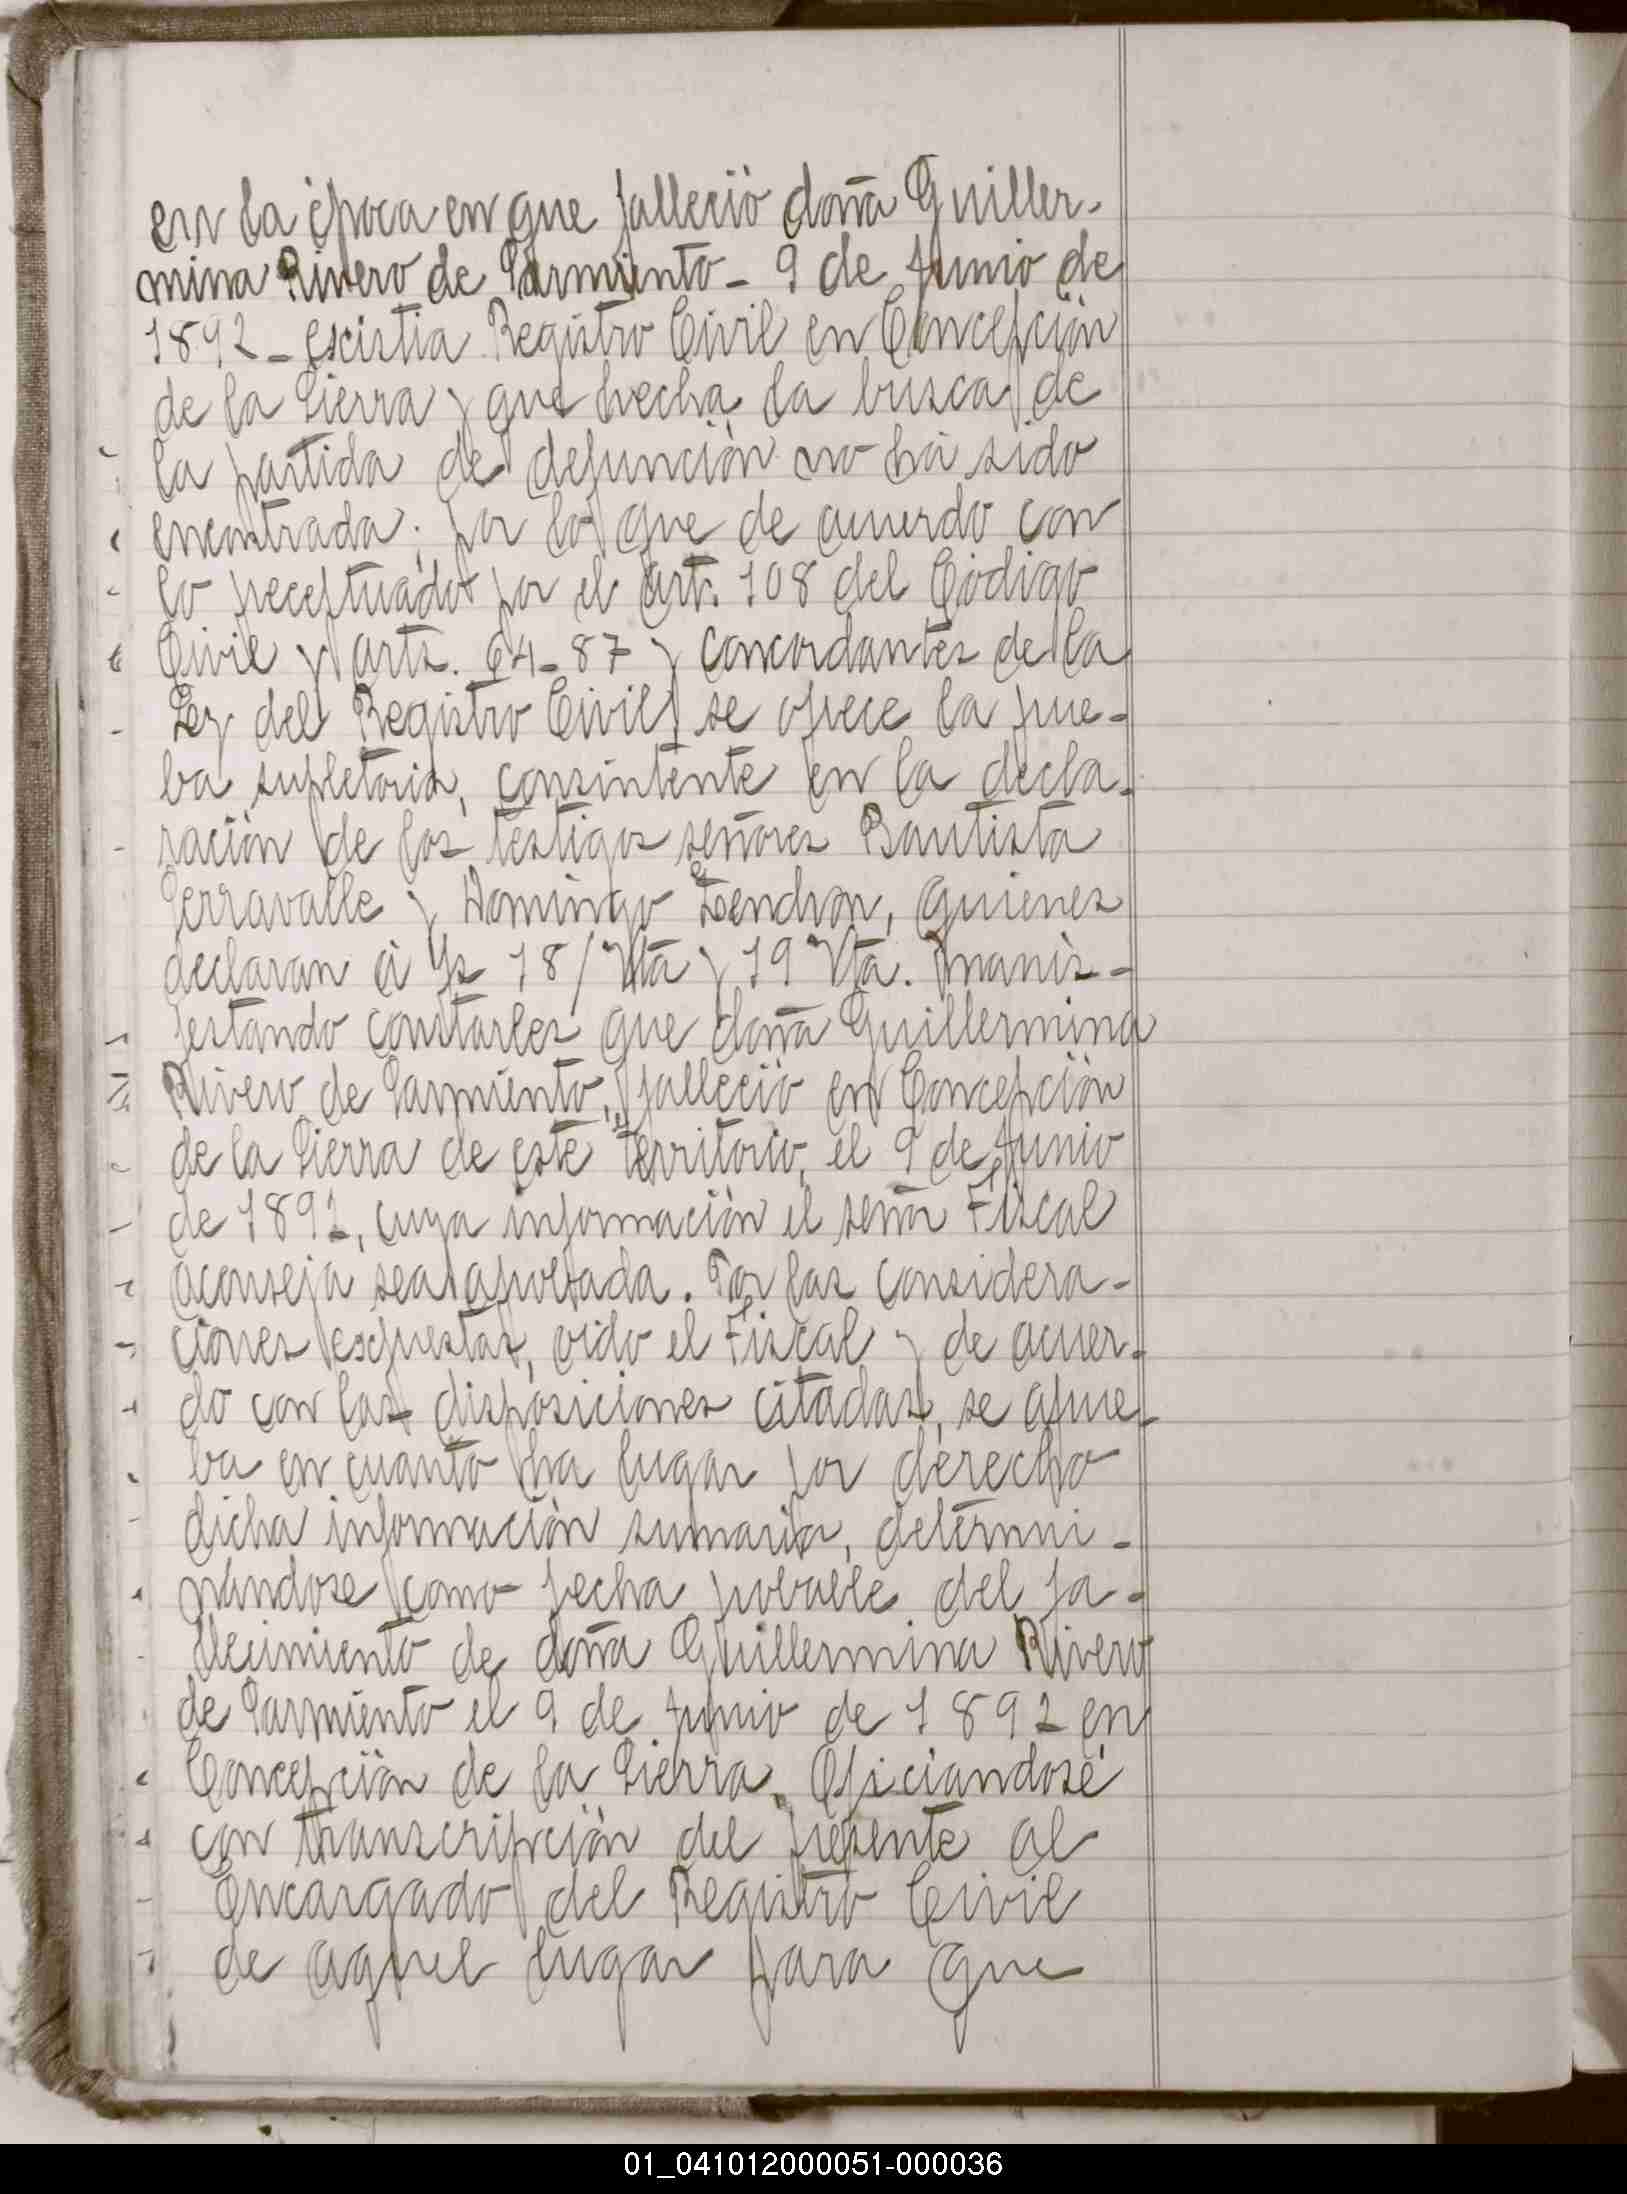 en la època en que falleciò doña Guiller-
mina Rivero de Sarmiento - 9 de Junio de
1892 - existia Registro Civil en Concepciòn
de la Sierra y que hecha la busca de
la partida de defunciòn no hà sido
encontrada; por lo que de acuerdo con
lo preceptuàdo por el art. 108 del Còdigo
Civil y arts. 64-87 y concordantes de la
Ley del Registro Civil, se ofrece la prue-
ba supletoria, consintente en la decla-
raciòn de los testigos señores Bautista
Serravalle y Domingo Zendron, quienes
declaran à fs 18/Vta y 19 Vta. manis-
festando constarles que doña Guillermina
Rivero de Sarmiento, falleciò en Concepciòn
de la Sierra de este territorio, el 9 de Junio
de 1892, cuya informaciòn el señor Fiscal
aconseja sea aprobada. Por las considera-
ciones expuestas, oido el Fiscal y de acuer-
do con las disposiciones citadas, se aprue-
ba en cuanto ha lugar por derecho
dicha informaciòn sumaria, determi-
nandose como fecha probable del fa-
llecimiento de doña Guillermina Rivero
de Sarmiento el 9 de Junio de 1892 en
Concepciòn de la Sierra. Oficiandosé
con transcripciòn del presente al
Encargado del Registro Civil
de aquel lugar para que
01_041012000051-000036